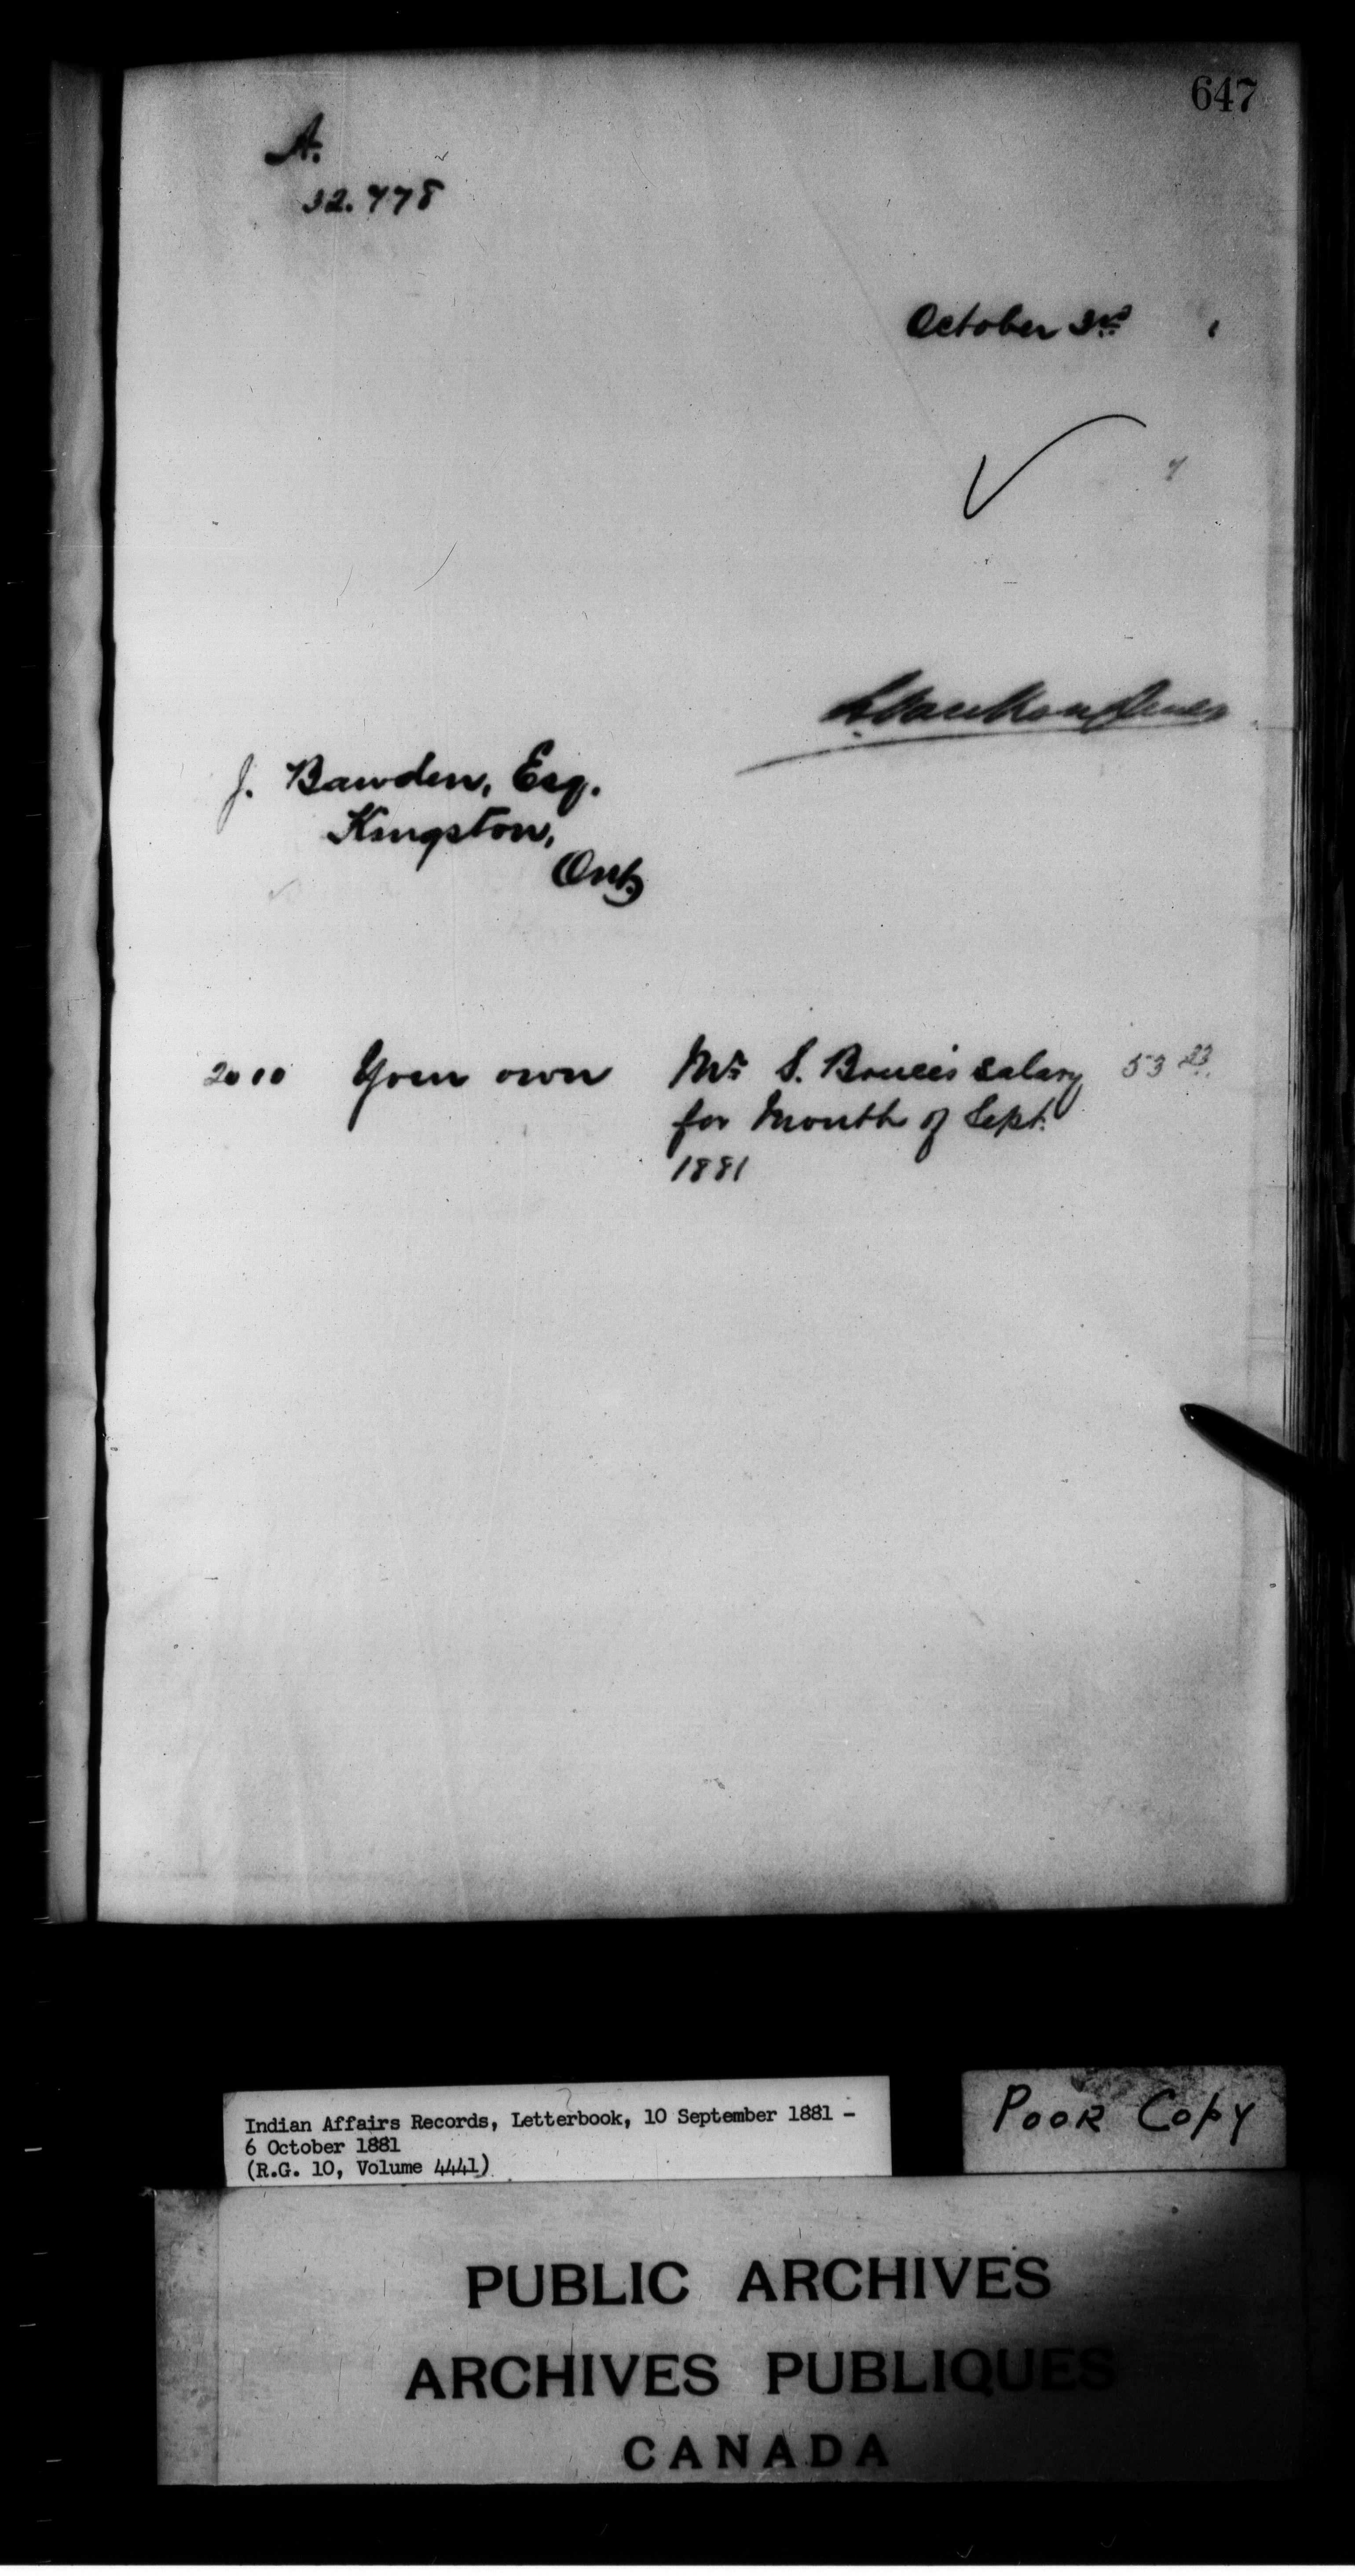 647
A.
32.778
October 3rd 1
L. Vankoughnet
J. Bawden, Esq.
Kingston,
Ont.
2010 Your own Mr. S. Bruce's salary 53 33
for Month of Sept.
1881
Indian Affairs Records, Letterbook, 10 September 1881 -
6 October 1881
(R.G. 10, Volume 4441)
POOR COPY
PUBLIC ARCHIVES
ARCHIVES PUBLIQUES
CANADA